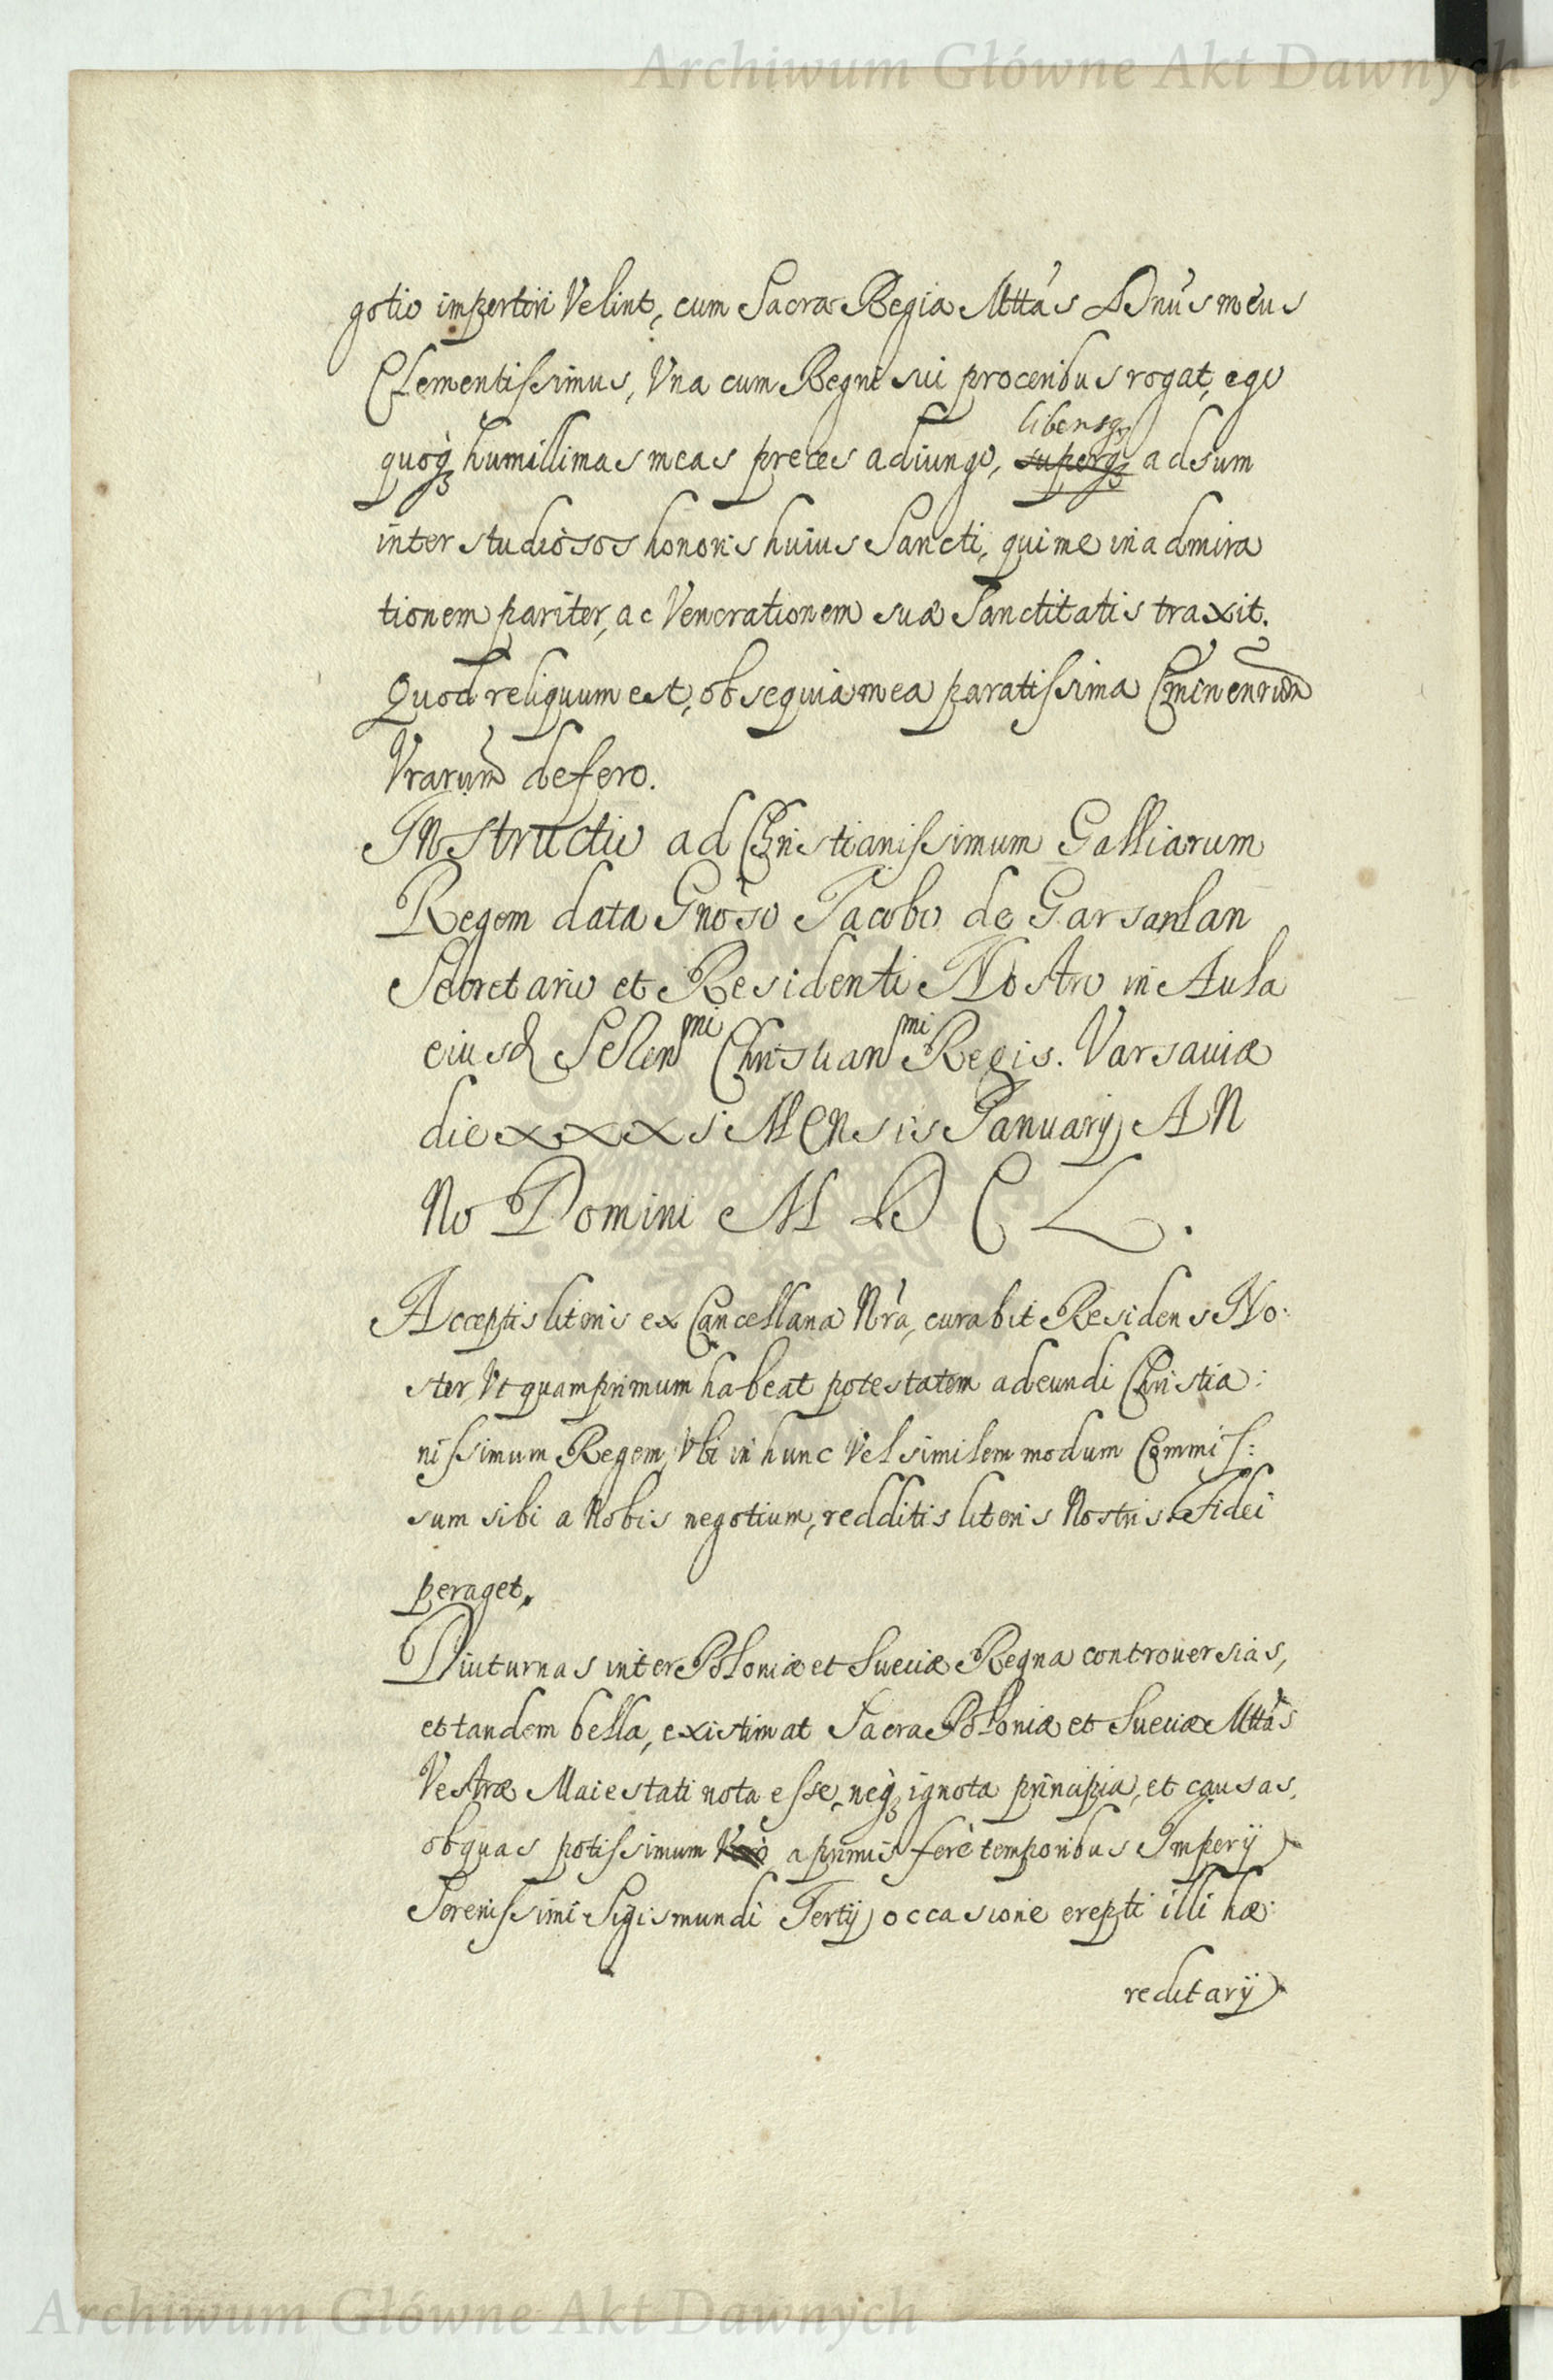 Archiwum Główne Akt Dawnych
gotio impertiri Velint, cum Sacra Regia Mttas Dnus meus
Clementissimus, Vna cum Regni sui proceribus rogat, ego
libensq;
quoq; humillimas meas preces adiungo, superq; adsum
inter studiosos honoris huius Sancti, qui me in admira
tionem pariter, ac Venerationem suæ Sanctitatis traxit.
Quod reliquum est, obsequia mea paratissima
Vrarum defero.
INstructio ad Christianissimum Galliarum
Regem data Gnoso Jacobo de Garsanlan
Secretario et Residenti Nostro in Aula
eiusd Seren^mi Christian^mi Regis. Varsauiæ
die xxxi MENsis Januarij AN
No Domini M D C L.
Acceptis literis ex Cancellaria Nra, curabit Residens No:
ster, Vt quamprimum habeat potestatem adeundi Christia:
nissimum Regem, Vbi in hunc Vel similem modum Commis:
sum sibi a Nobis negotium, redditis literis Nostris Fidei
peraget.
Diuturnas inter Poloniæ et Sueciæ Regna controuersias,
et tandem bella, existimat Sacra Poloniæ et Sueciæ Mttas
Vestræ Maiestati nota esse, neq; ignota principia, et causas,
ob quas potissimum Vero a primis ferè temporibus Imperij
Serenissimi Sigismundi Tertij occasione erepti illi hæ:
reditarij
Archiwum Główne Akt Dawnych